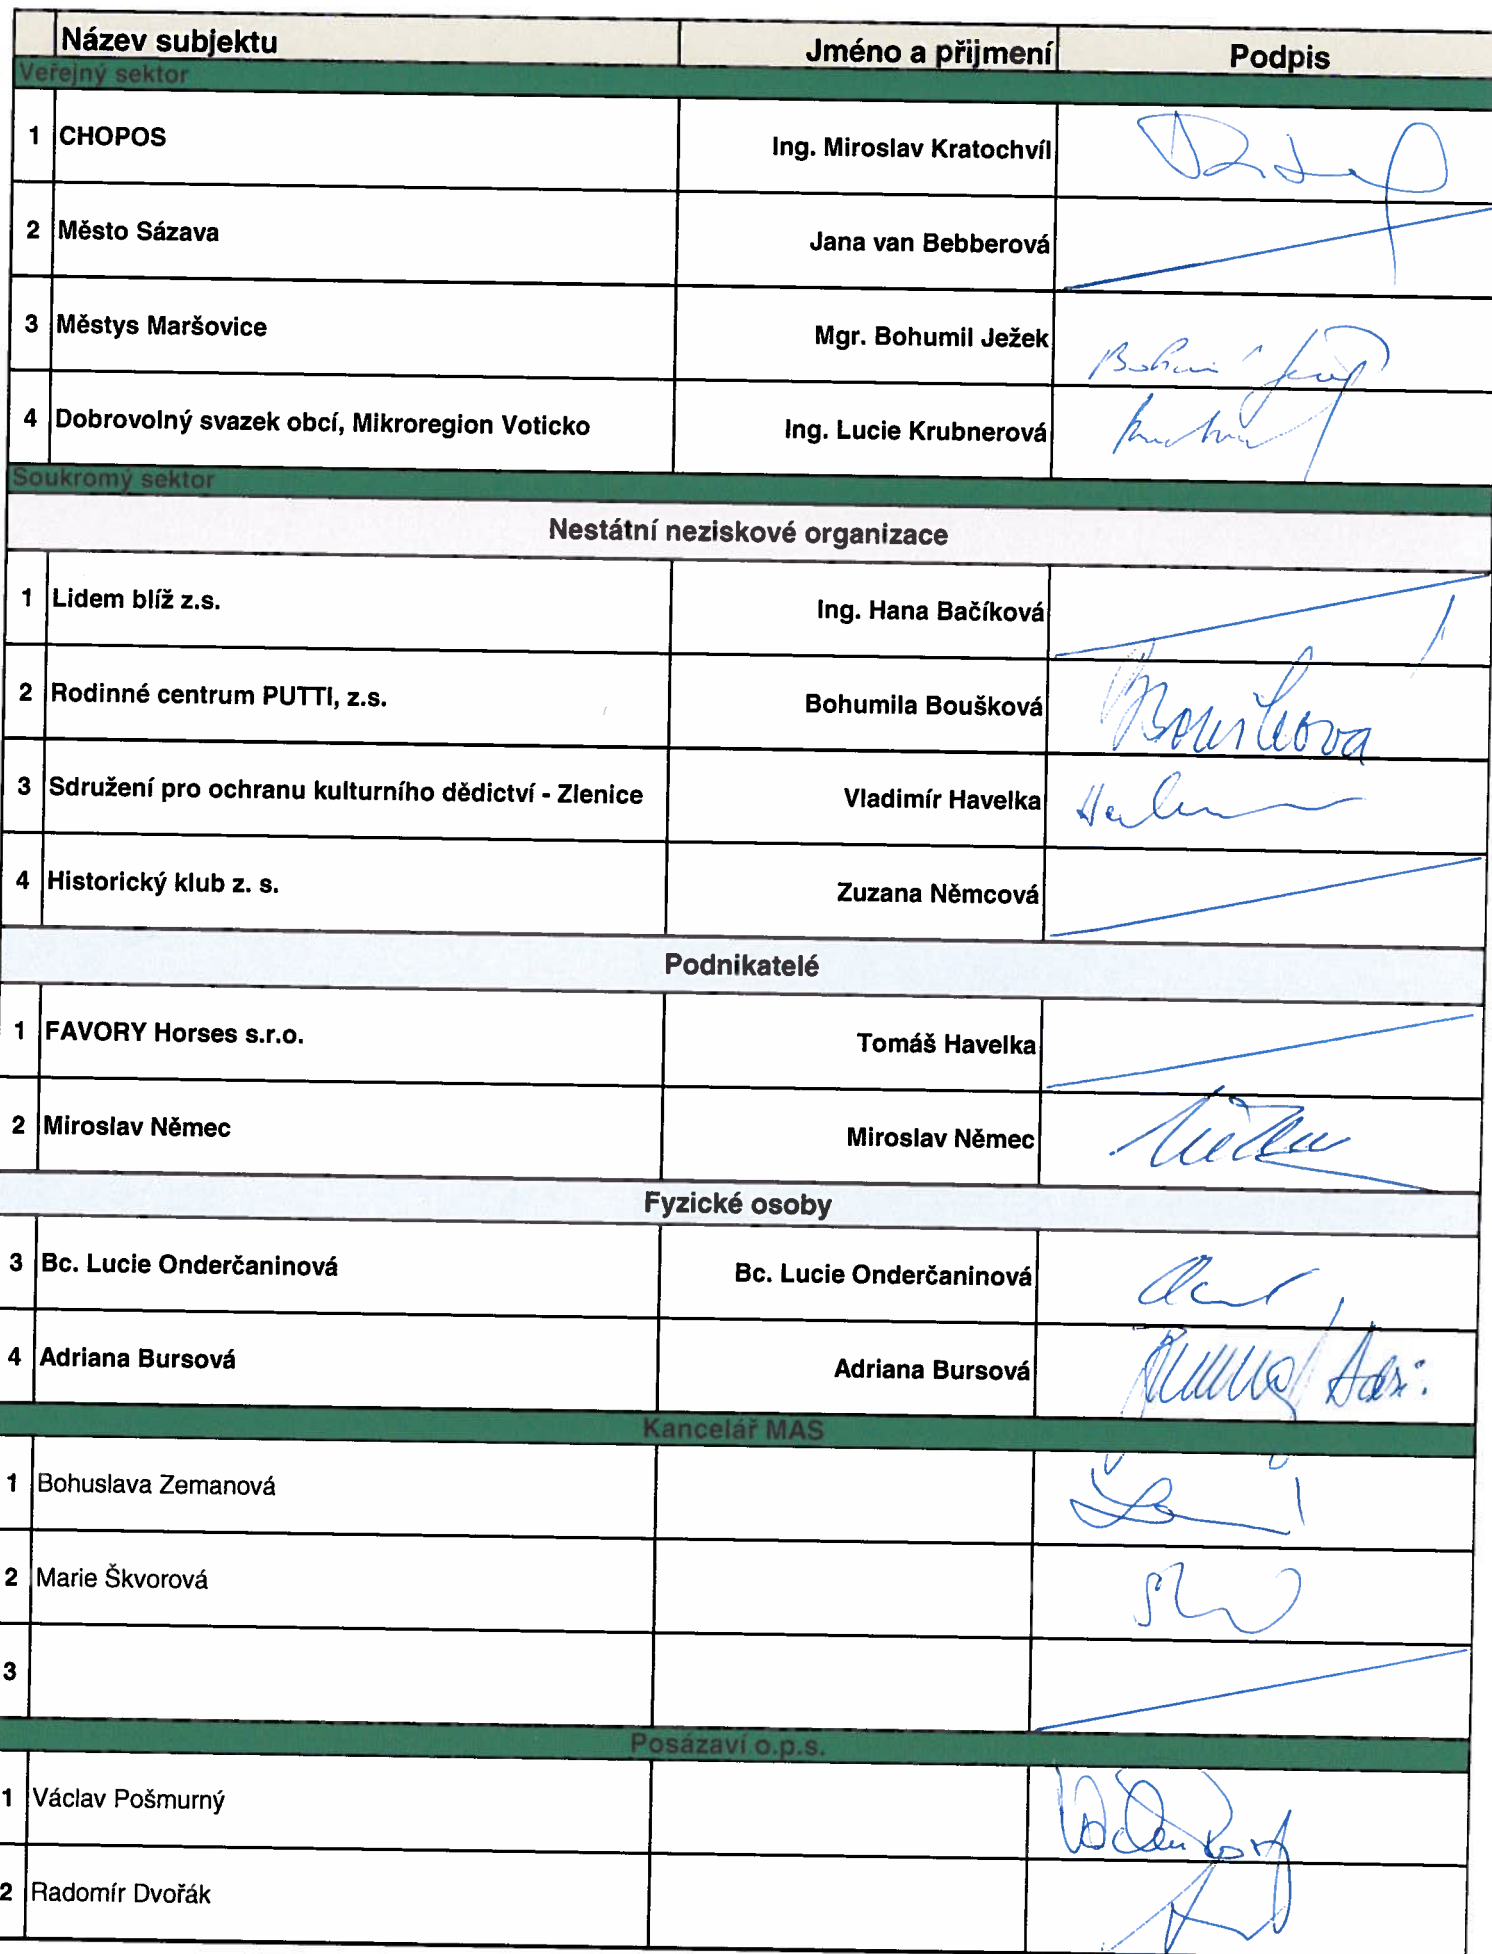 Název subjektu Jméno a přijmení Podpis
Veřejný sektor
1 CHOPOS Ing. Miroslav Kratochvíl
2 Město Sázava Jana van Bebberová
3 Městys Maršovice Mgr. Bohumil Ježek
4 Dobrovolný svazek obcí, Mikroregion Voticko Ing. Lucie Krubnerová
Soukromý sektor
Nestátní neziskové organizace
1 Lidem blíž z.s. Ing. Hana Bačíková
2 Rodinné centrum PUTTI, z.s. Bohumila Boušková Boušková
3 Sdružení pro ochranu kulturního dědictví - Zlenice Vladimír Havelka
4 Historický klub z. s. Zuzana Němcová
Podnikatelé
1 FAVORY Horses s.r.o. Tomáš Havelka
2 Miroslav Němec Miroslav Němec
Fyzické osoby
3 Bc. Lucie Onderčaninová Bc. Lucie Onderčaninová
4 Adriana Bursová Adriana Bursová
Kancelář MAS
1 Bohuslava Zemanová
2 Marie Škvorová
3
Posázaví o.p.s.
1 Václav Pošmurný
2 Radomír Dvořák